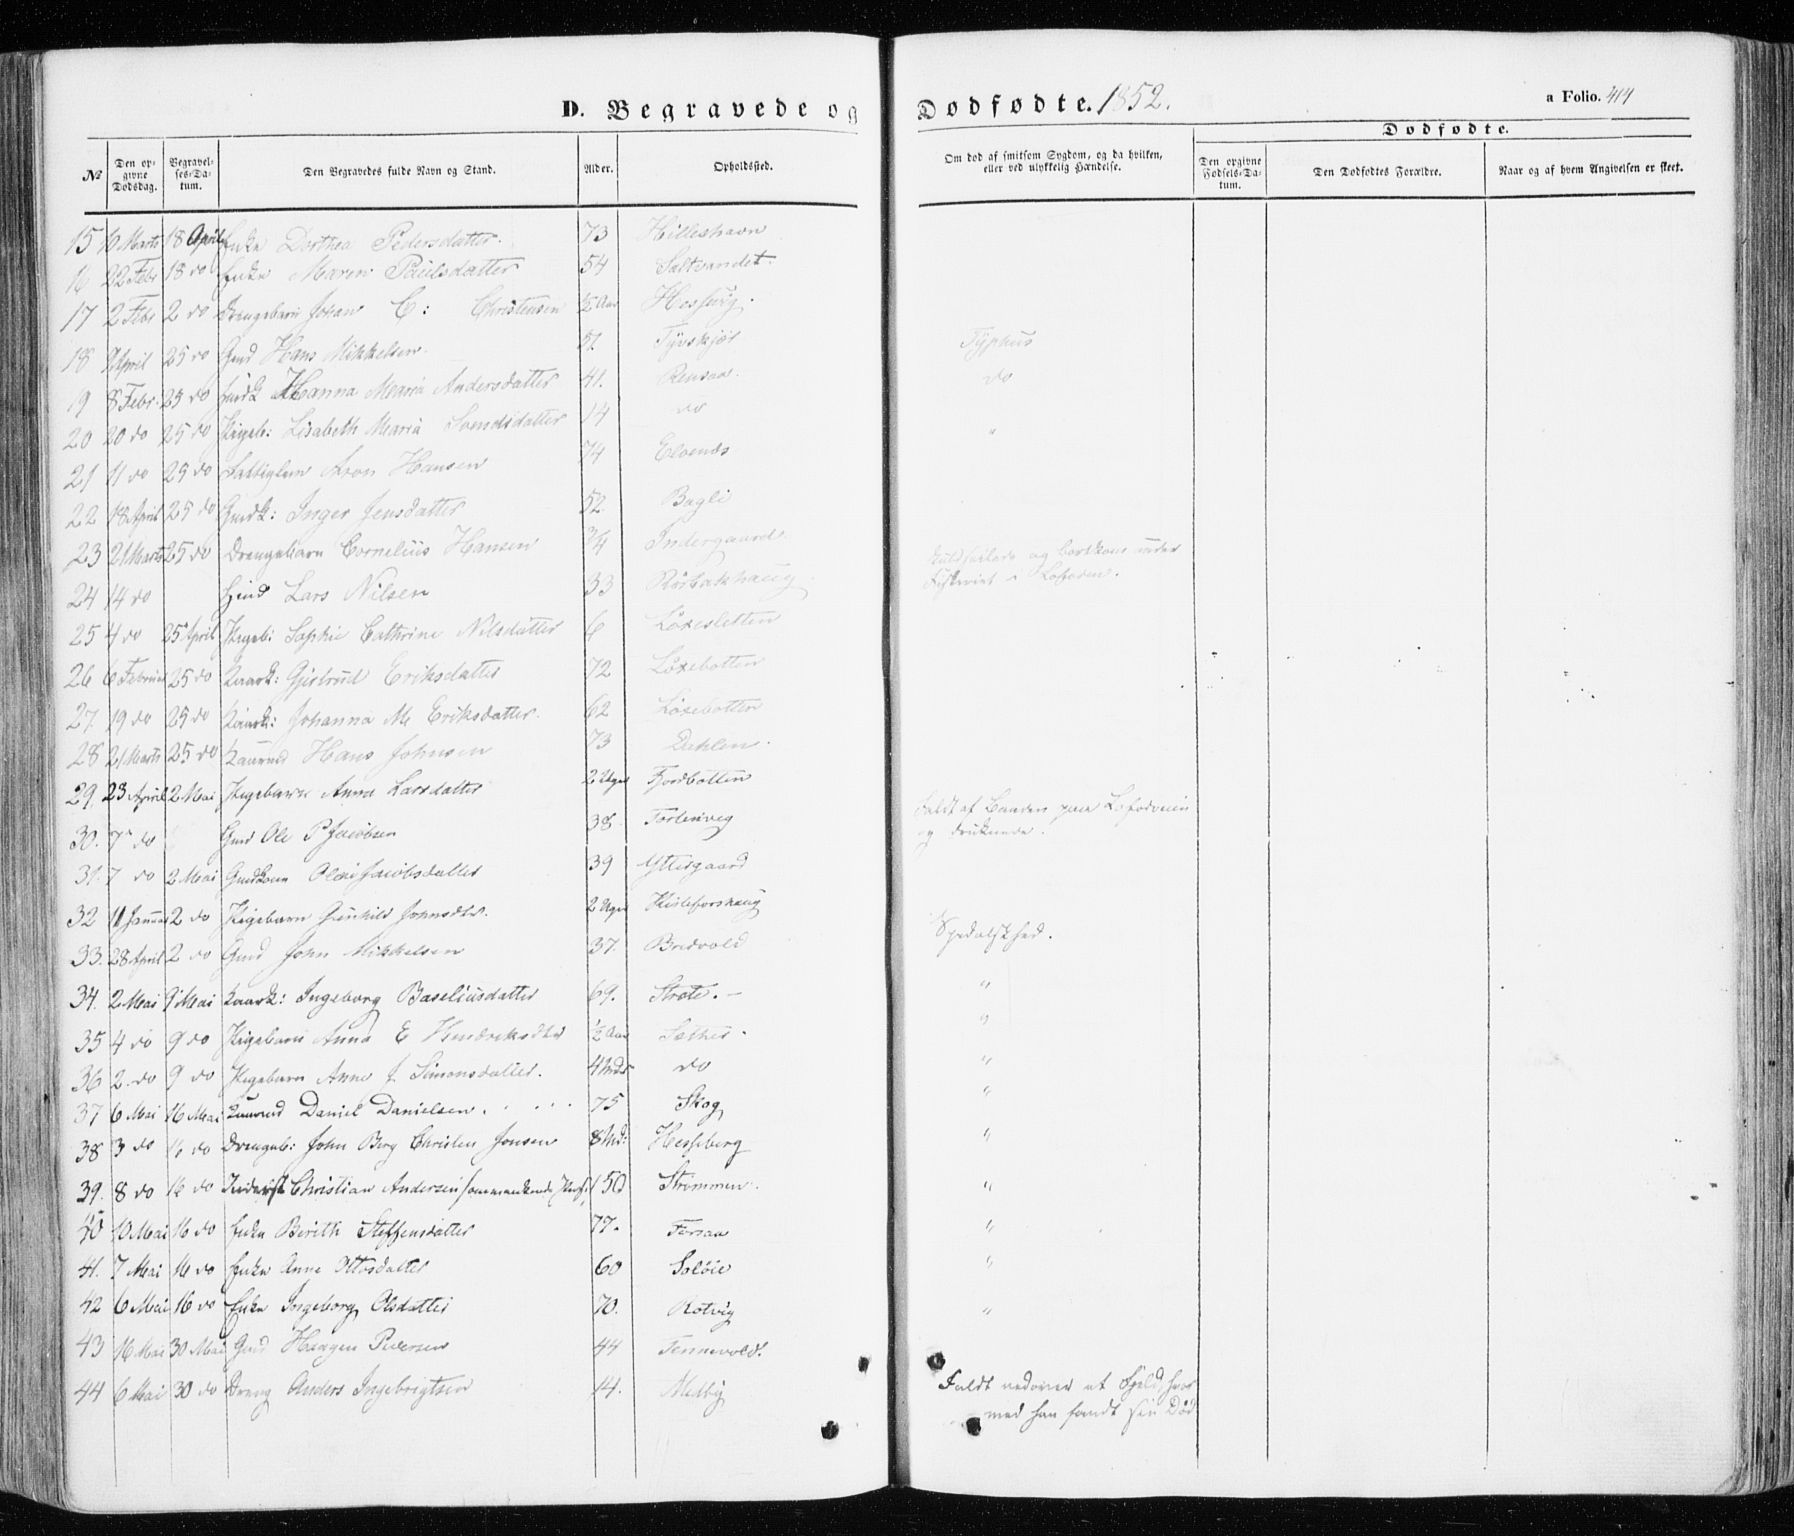 D. Begravede og Dødfødte. 1852. a Folio. 414
Dødfødte.
№ Den opgivne Dødsdag. Begravelses-Datum. Den Begravedes fulde Navn og Stand. Alder. Opholdssted. Om død af smitsom Sygdom, og da hvilken, eller ved ulykkelig Hændelse. Den opgivne Fødsels-Datum. Den Dødfødtes Forældre. Naar og af hvem Angivelsen er skeet.
15 10 Marts 18 April Enke Dorthea Pedersdatter. 73 Hilleshavn
16 22 Febr 18 do Enke Maren Paulsdatter 54 Saltvandet.
17 2 Febr 2 do Drengebarn Johan C: Christensen
18 April 25 do Gmd Hans Mikkelsen. 51. Tyvskjær Typhus
19 8 Febr. 25 do Hanna Maria Andersdatter 41. Rensaa. do
20 20 do 25 do Pigeb: Lisabeth Maria Svendsdatter 14 do "
21 11 do 25 do Aron Hansen 74 Elvenes
22 18 April 25 do Gmdk: Inger Jensdatter 52. Bogli
23 21 Marts 25 do Drengebarn Cornelius Hansen 3/4 Indergaard.
24 14 do Lars Nilsen 33 Rørbakhaug Kuldseilede og bortkom under
Fiskeriet i Lofoden.
25 4 do 25 April Pigeb: Sophie Cathrine Nilsdatter 6 Løxesletten
26 6 Februar 25 do Kaark: Gjertrud Eriksdatter 72 Løxebotten
27. 19 do 25 do Kaark: Johanna M. Eriksdatter. 62 Løxebotten
28 21 Marts 25 do Kaarmd Hans Johnsen 73 Dahlen.
29. 23 April 2 Mai Pigebarn Anna Larsdatter 2 Uger Fjordbotten
30. 7 do Gmd Ole P Jacobsen 38 Forlenveg Faldt af Baaden paa Lofodveien
og druknede.
31. 7 do 2 Mai Gmdkone Jacobsdatter 39 Yttergaard
32 11 Januar 2 do Pigebarn Gunhild Johnsdtr. 2 Uger
33. 28 April 2 do Gmd John Mikkelsen 37. Bredvold Spedalskhed.
34. 2 Mai 9 Mai Kaark: Ingeborg Baseliusdatter 69. Strate. "
35 4 do 9 do Pigebarn Anna E Hendriksdtr 1/2 Aar Sæther. "
36 2. do 9 do Pigebarn Anne J. Simonsdatter. 4 Mdr do "
37 6 Mai 16 Mai Kaarmd Daniel Danielsen. 75 Skog "
38 3 do 16 do Drengeb: John Berg Christen Jonsen 8 Md: Hesseberg "
39. 8 do 16 do Inderst Christian Andersen 50 Strømmen. "
40 10 Mai 16 do Enke Berith Steffensdatter 77. Forsaa "
41. 7 Mai 16 do Enke Anne Ottosdatter 60 Soløie "
42 6 Mai 16 do Enke Ingeborg Olsdatter 70. Rotvig "
43 16 Mai 30 Mai Gmd Haagen Pedersen 44 Tennevold.
44 6 Mai 30 do Dreng Anders Ingebrigtsen 14. Melby Faldt nedover et Fjeld, hvor
med han fandt sin Død